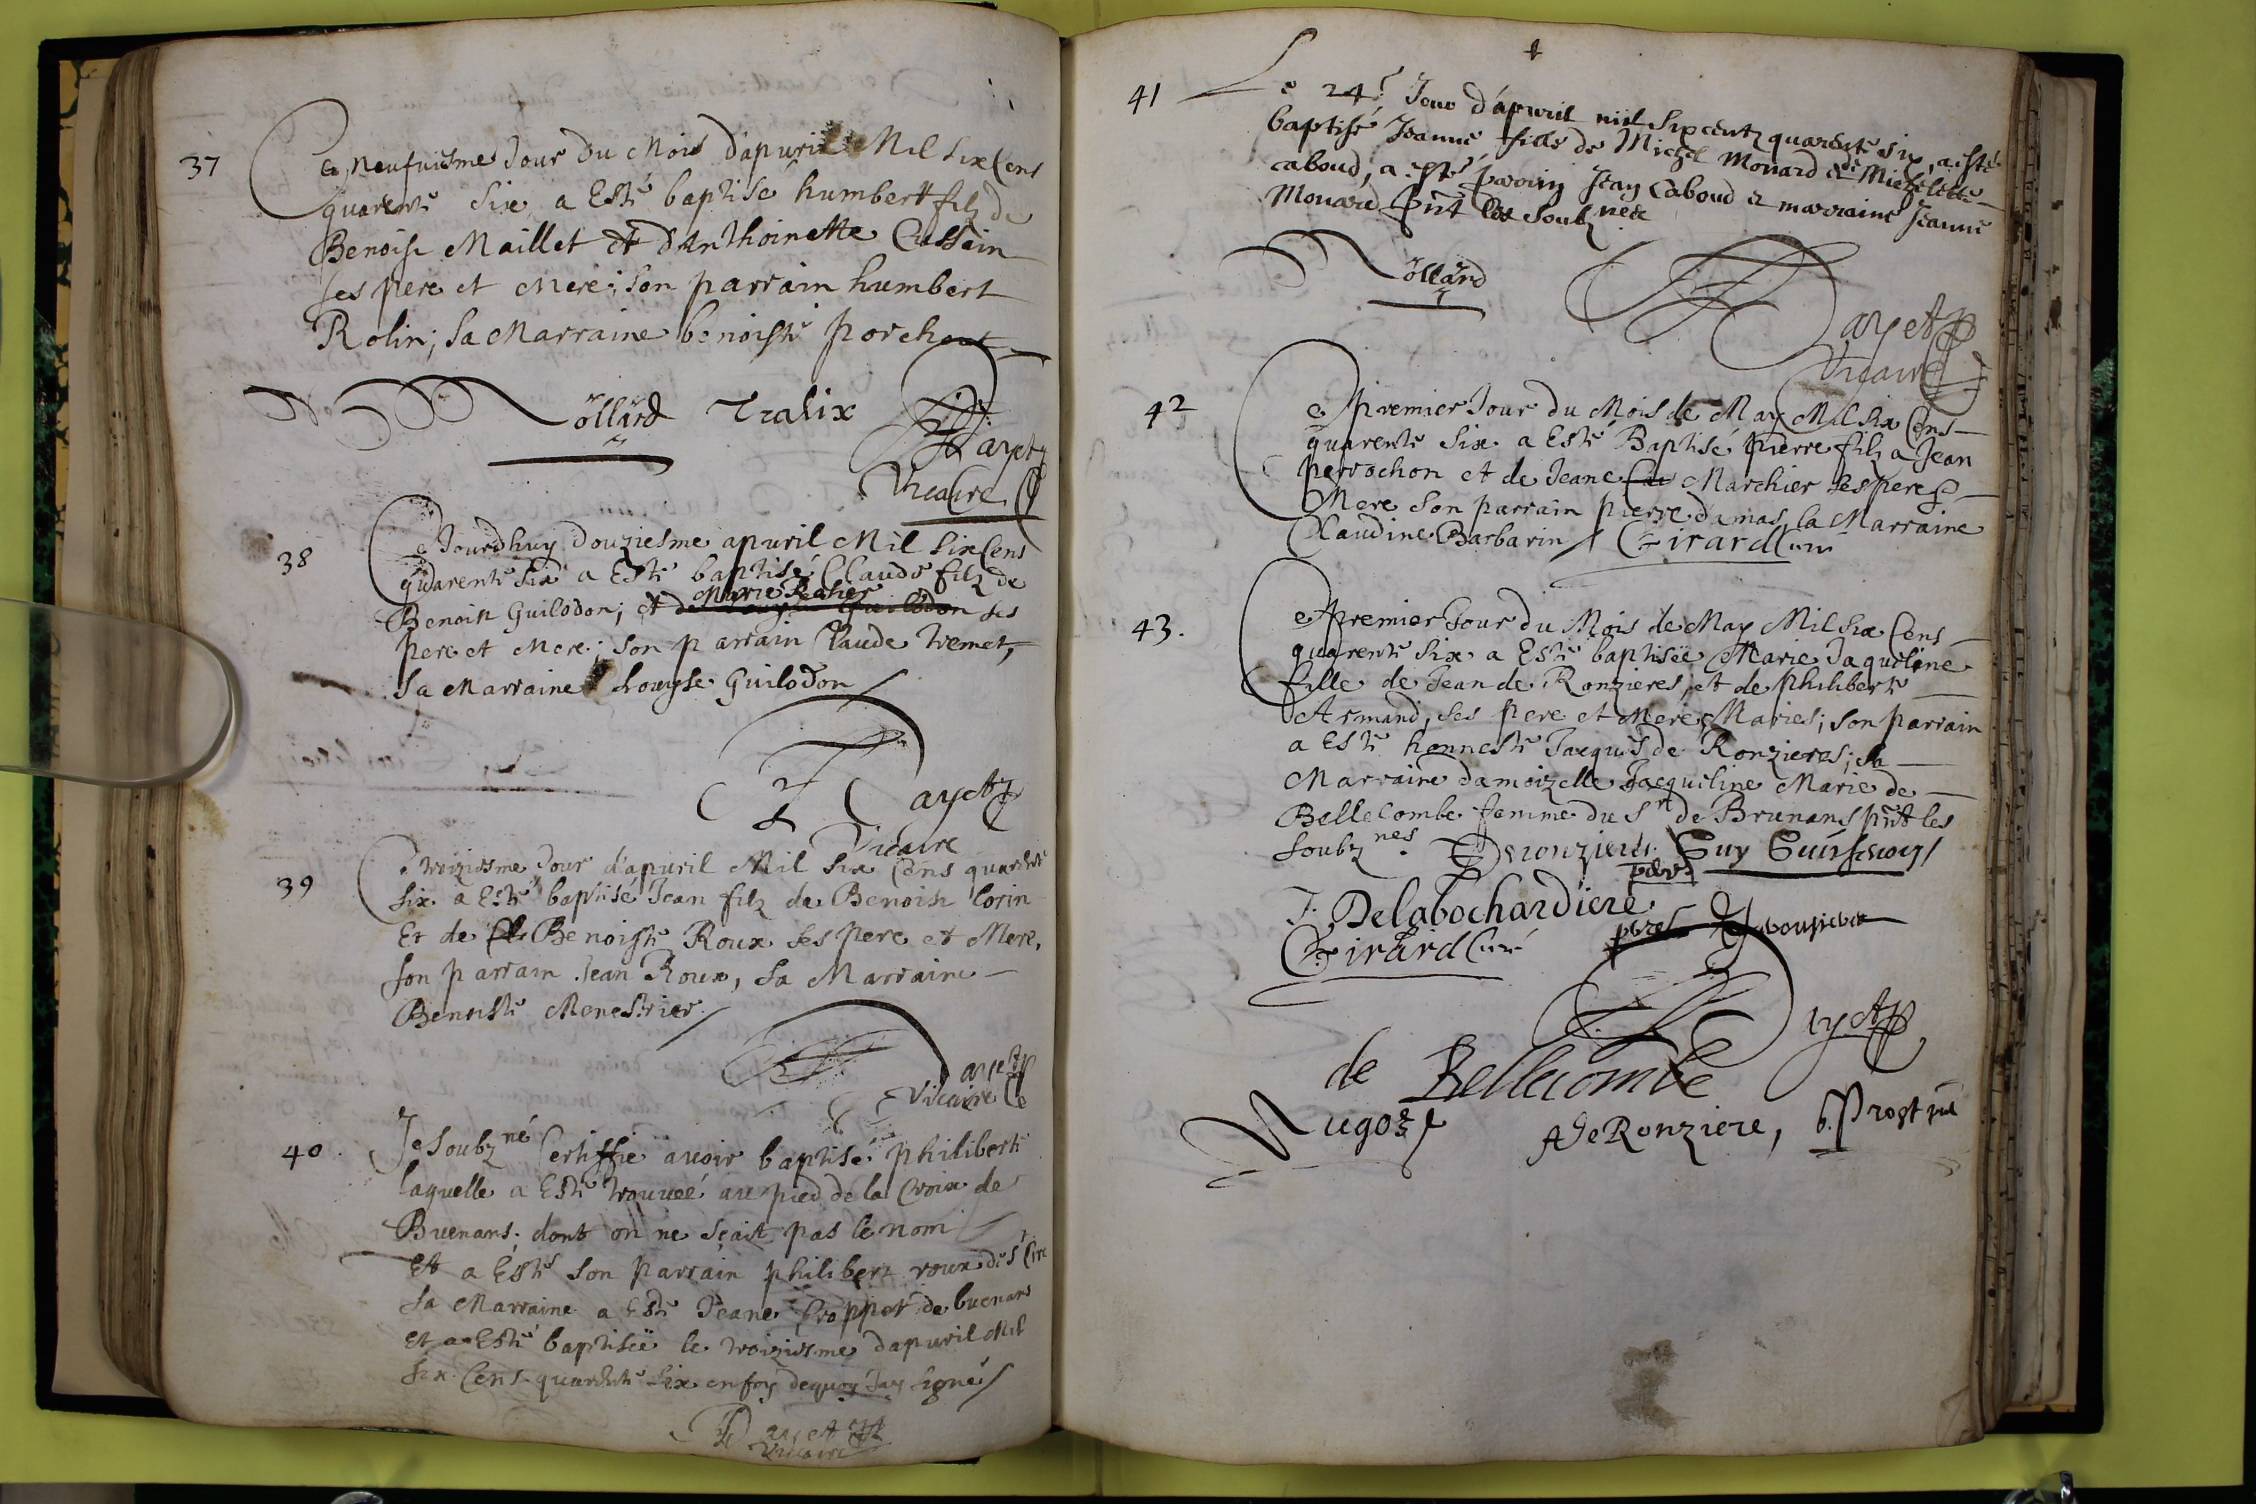 37
Ce Neufuiesme Jour du Mois d'apuril Mil Six Cens
quarente Six a Esté baptisé humbert filz de
Benoist Maillet et d'Anthoinette Cussein
ses pere et Mere; Son parrain humbert
Rolin; Sa Marraine benoiste porchout
Nöllard Tralix
Dayet
Vicaire
38
Ce Jourdhuy Douziesme apuril Mil Six Cens
quarente Six a Esté baptisé Claude filz de
Marie
Benoist Guilodon; et de Guilodon ses
pere et Mere; Son parrain Claude
Sa Marraine Louyse Guilodon
Dayet
Vicaire
39
Ce troiziesme Jour d'apuril Mil Six Cens quarente
Six a Esté baptisé Jean filz de Benoist Corin
Et de Benoiste Roux ses pere et Mere,
Son parrain Jean Roux, Sa Marraine
Benoiste Menestrier
Dayet
Vicaire
40.
Je Soubzné Certiffie auoir baptisé philiberte
laquelle a Esté trouueé au pied de la Croix de
Buenans; dont on ne sçait pas le nom
Et a Esté Son Parrain philibert roux de St Cire
Sa Marraine a Esté Jeane de buenans
Et a Esté baptiseë le troiziesme dapuril Mil
Six Cens quarente Six en foy dequoy Jay signé
Dayet
Vicaire
41
Le 24e Jour d'apuril mil Six centz quarente six, a esté
baptisé Jeanne fille de Michel Monard & de Michelette
caboud, a esté parrin Jean Caboud & marraine Jeanne
Monard pñt les Soubznés
Nöllard
Dayet
Vicaire
42
Ce premier Jour du Mois de May Mil Six Cens
quarente Six a Esté Baptisé Pierre filz a Jean
Perrochon et de Jeane Marchier Ses pere &
Mere Son parrain pierre damas, la Marraine
Claudine Barbarin Girard Curé
43.
Ce premier Jour du Mois de May Mil Six Cens
quarente Six a Esté baptiseë Marie Jaqueline
fille de Jean de Ronzieres, et de philiberte
Armand, Ses pere et Mere Maries; Son parrain
a Esté honneste Jacques de Ronzieres; Sa
Marraine damoizelle Jacqueline Marie de
Bellecombe femme du Sr de Brunans pñt les
Soubznes. Deronzieres Guy
J. Delabochardiere
Girard Curé
Dayet
de Bellecombe
Nugoz
A de Ronziere, b. Prost